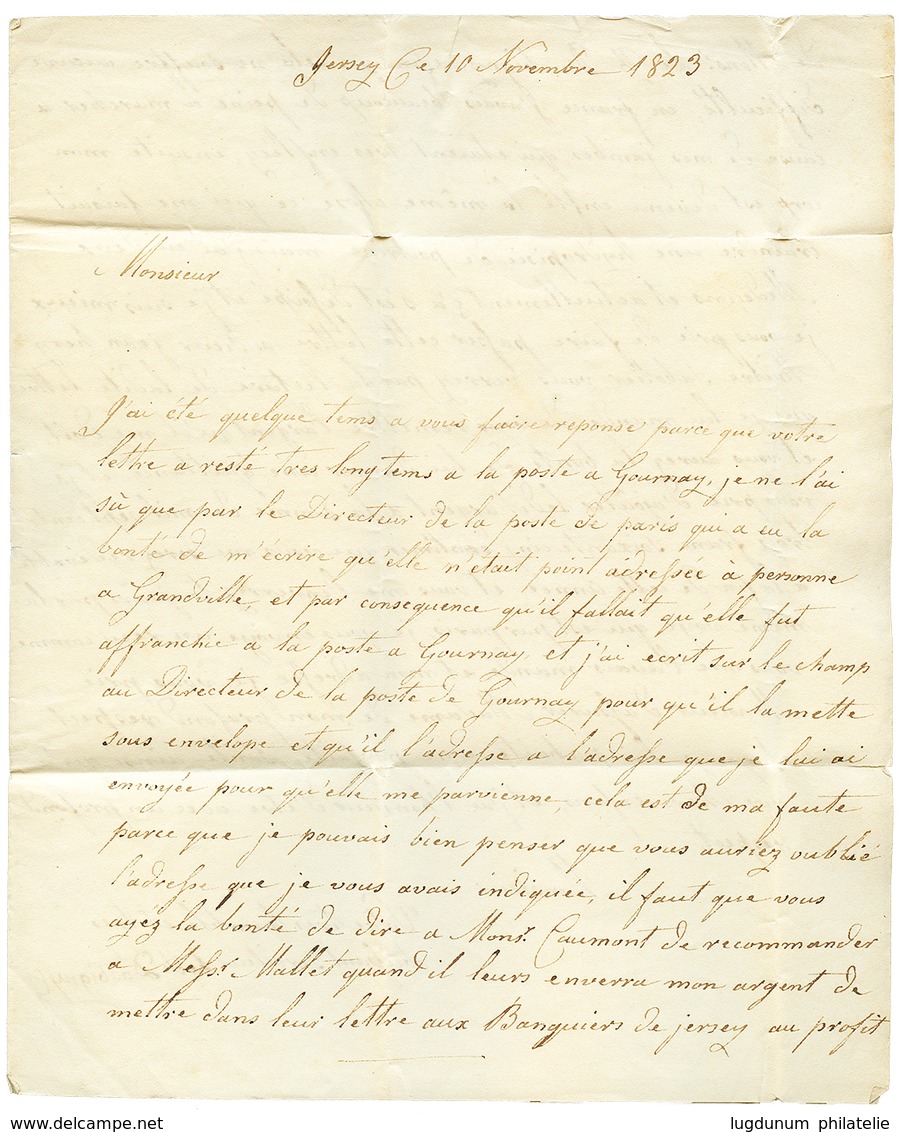 Jersey Ce 10 Novembre 1823
Monsieur
J'ai été quelque tems a vous faire reponse parce que votre
lettre a resté tres longtems a la poste a Gournay, je ne l'ai
sù que par le Directeur de la poste de paris qui a eu la
bonté de m'écrire qu'elle n'était point adressée à personne
a Grandville, et par consequence qu'il fallait qu'elle fut
affranchie a la poste a Gournay, et j'ai ecrit sur le champ
au Directeur de la poste de Gournay pour qu'il la mette
sous envelope et qu'il l'adresse a l'adresse que je lui ai
envoyée pour qu'elle me parvienne, cela est de ma faute
parce que je pouvais bien penser que vous auriez oublié
l'adresse que je vous avais indiquée, il faut que vous
ayez la bonté de dire a Monsr. Caumont de recommander
a Messr. Mallet quand il leurs enverra mon argent de
mettre dans leur lettre aux Banquiers de jersey au profit
www.delcampe.net
lugdunum philatelie